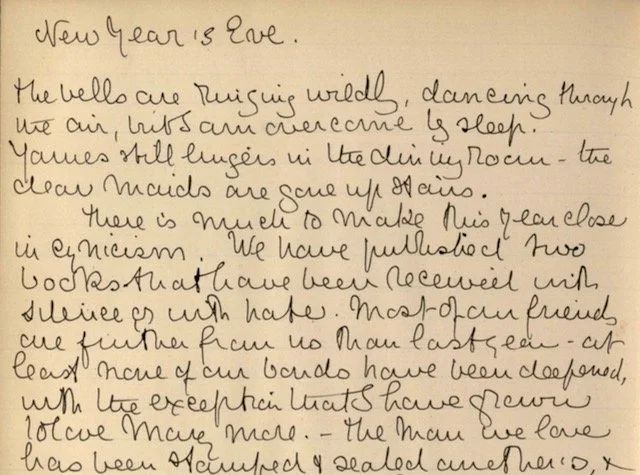 New Year's Eve.
the bells are ringing wildly, dancing through
the air, but I am overcome by sleep.
James still lingers in the dining Room – the
dear Maids are gone up stairs.
There is much to make this year close
in cynicism. We have published two
books that have been received with
silence or with hate. Most of our friends
are further from us than last year – at
least none of our bonds have been deepened,
with the exception that I have grown
to love Mary more. – The man we love
has been stamped & sealed another's, &